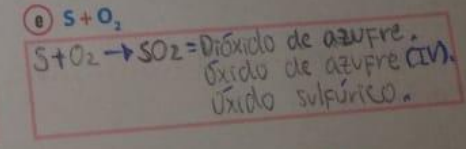 e S+O₂
S+O2→SO2=Dióxido de azufre.
óxido de azufre (IV).
Óxido sulfúrico.